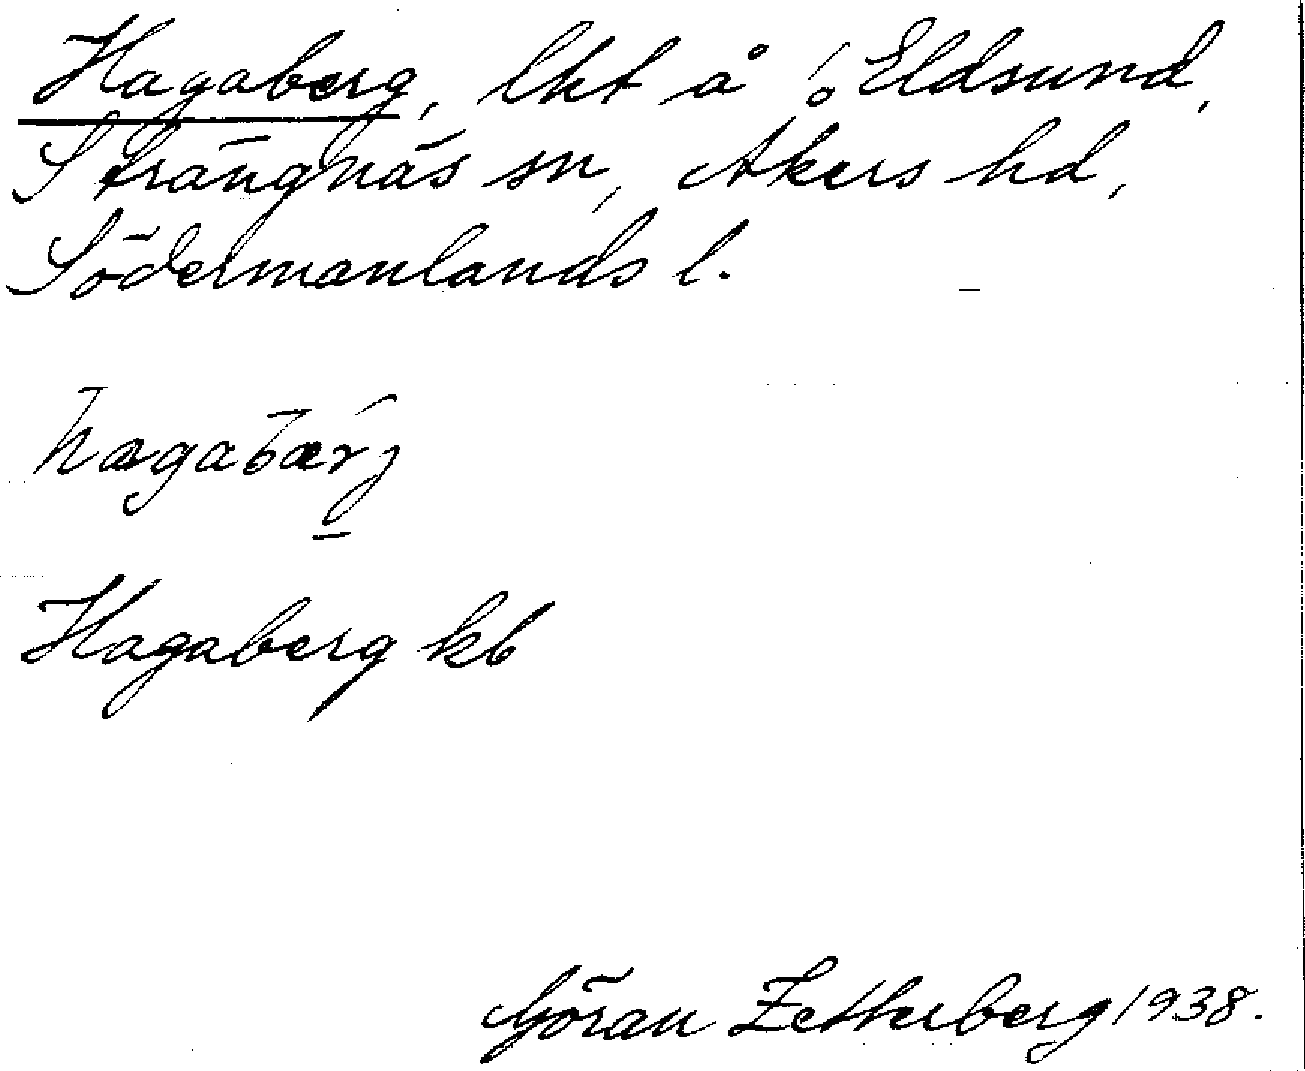 Hagaberg, lht å ! Eldsund,
Strängnäs sn, Åkers hd,
Södermanlands l.
hagabærj
Hagaberg kb
Göran Zetterberg 1938.